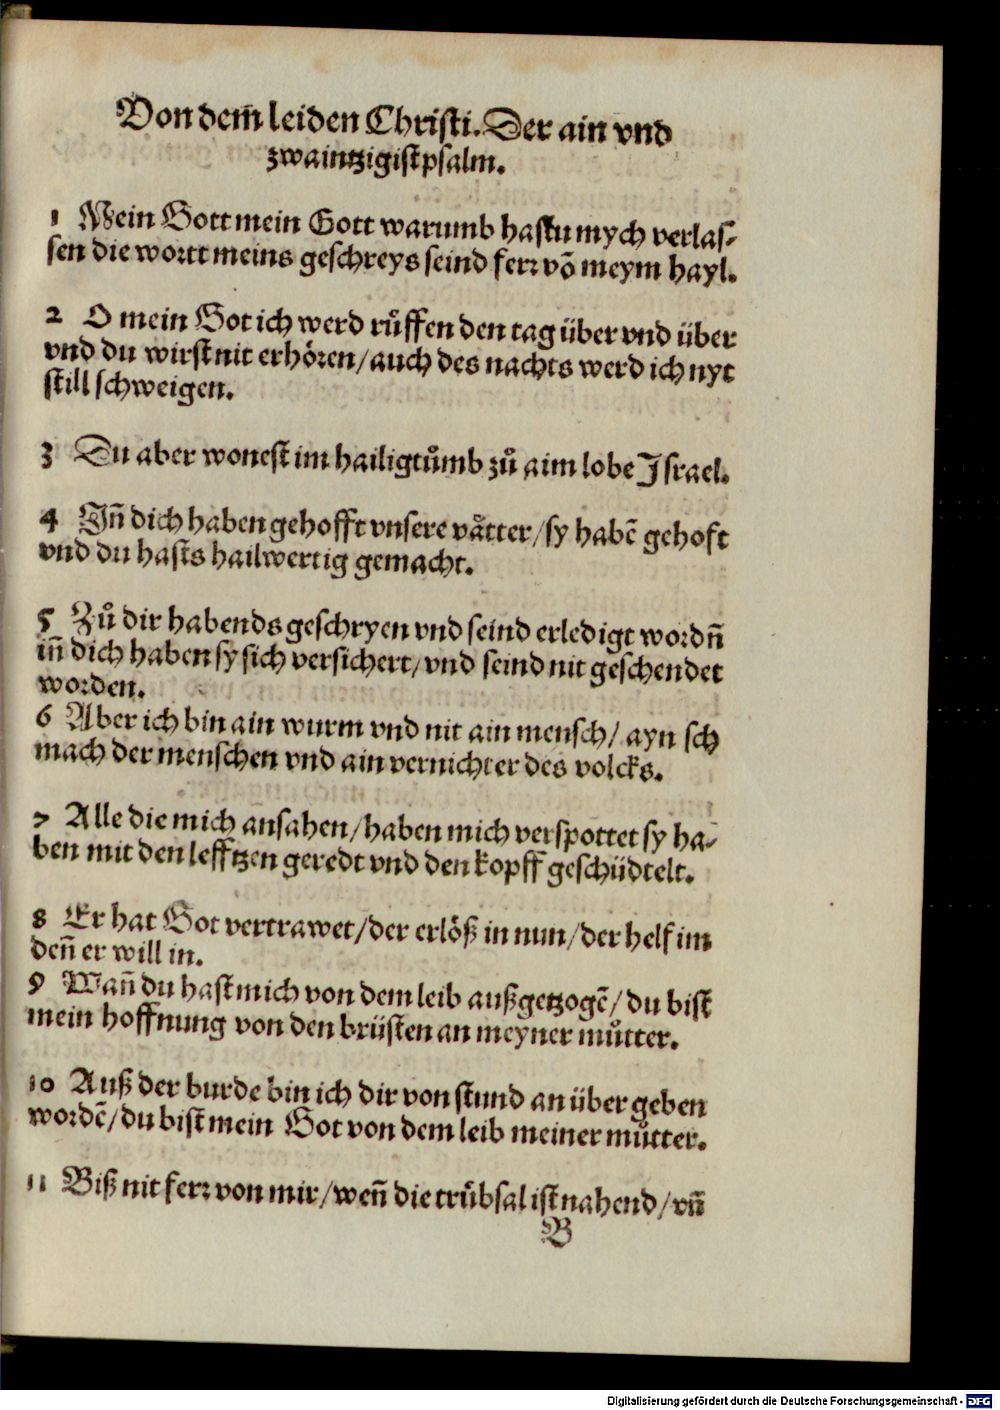 Von dem̃ leiden Christi. Der ain vnd
zwaintzigist psalm.
1 Mein Gott mein Gott warumb hastu mych verlas-
sen die wortt meins geschreys seind ferr võ meym hayl.
2 O mein Got ich werd ruͤffen den tag über vnd über
vnd du wirst nit erhören/ auch des nachts werd ich nyt
still schweigen.
3 Du aber wonest im hailigtuͤmb zuͦ aim lobe Israel.
4 Jñ dich haben gehofft vnsere vaͤtter/ sy habẽ gehoft
vnd du hasts hailwertig gemacht.
5 Zuͦ dir habends geschryen vnd seind erledigt wordñ
iñ dich haben sy sich versichert/ vnd seind nit geschendet
worden.
6 Aber ich bin ain wurm vnd nit ain mensch/ ayn sch
mach der menschen vnd ain vernichter des volcks.
7 Alle die mich ansahen/ haben mich verspottet sy ha-
ben mit den lefftzen geredt vnd den kopff geschüdtelt.
8 Er hat Got vertrawet/ der erlöß in nun/ der helf im
deñ er will in.
9 Wañ du hast mich von dem leib außgetzogẽ/ du bist
mein hoffnung von den brüsten an meyner muͦtter.
10 Auß der burde bin ich dir von stund an über geben
wordẽ/ du bist mein Got von dem leib meiner muͦtter.
11 Biß nit ferr von mir/ weñ die truͤbsal ist nahend/ vñ
B
Digitalisierung gefördert durch die Deutsche Forschungsgemeinschaft - DFG